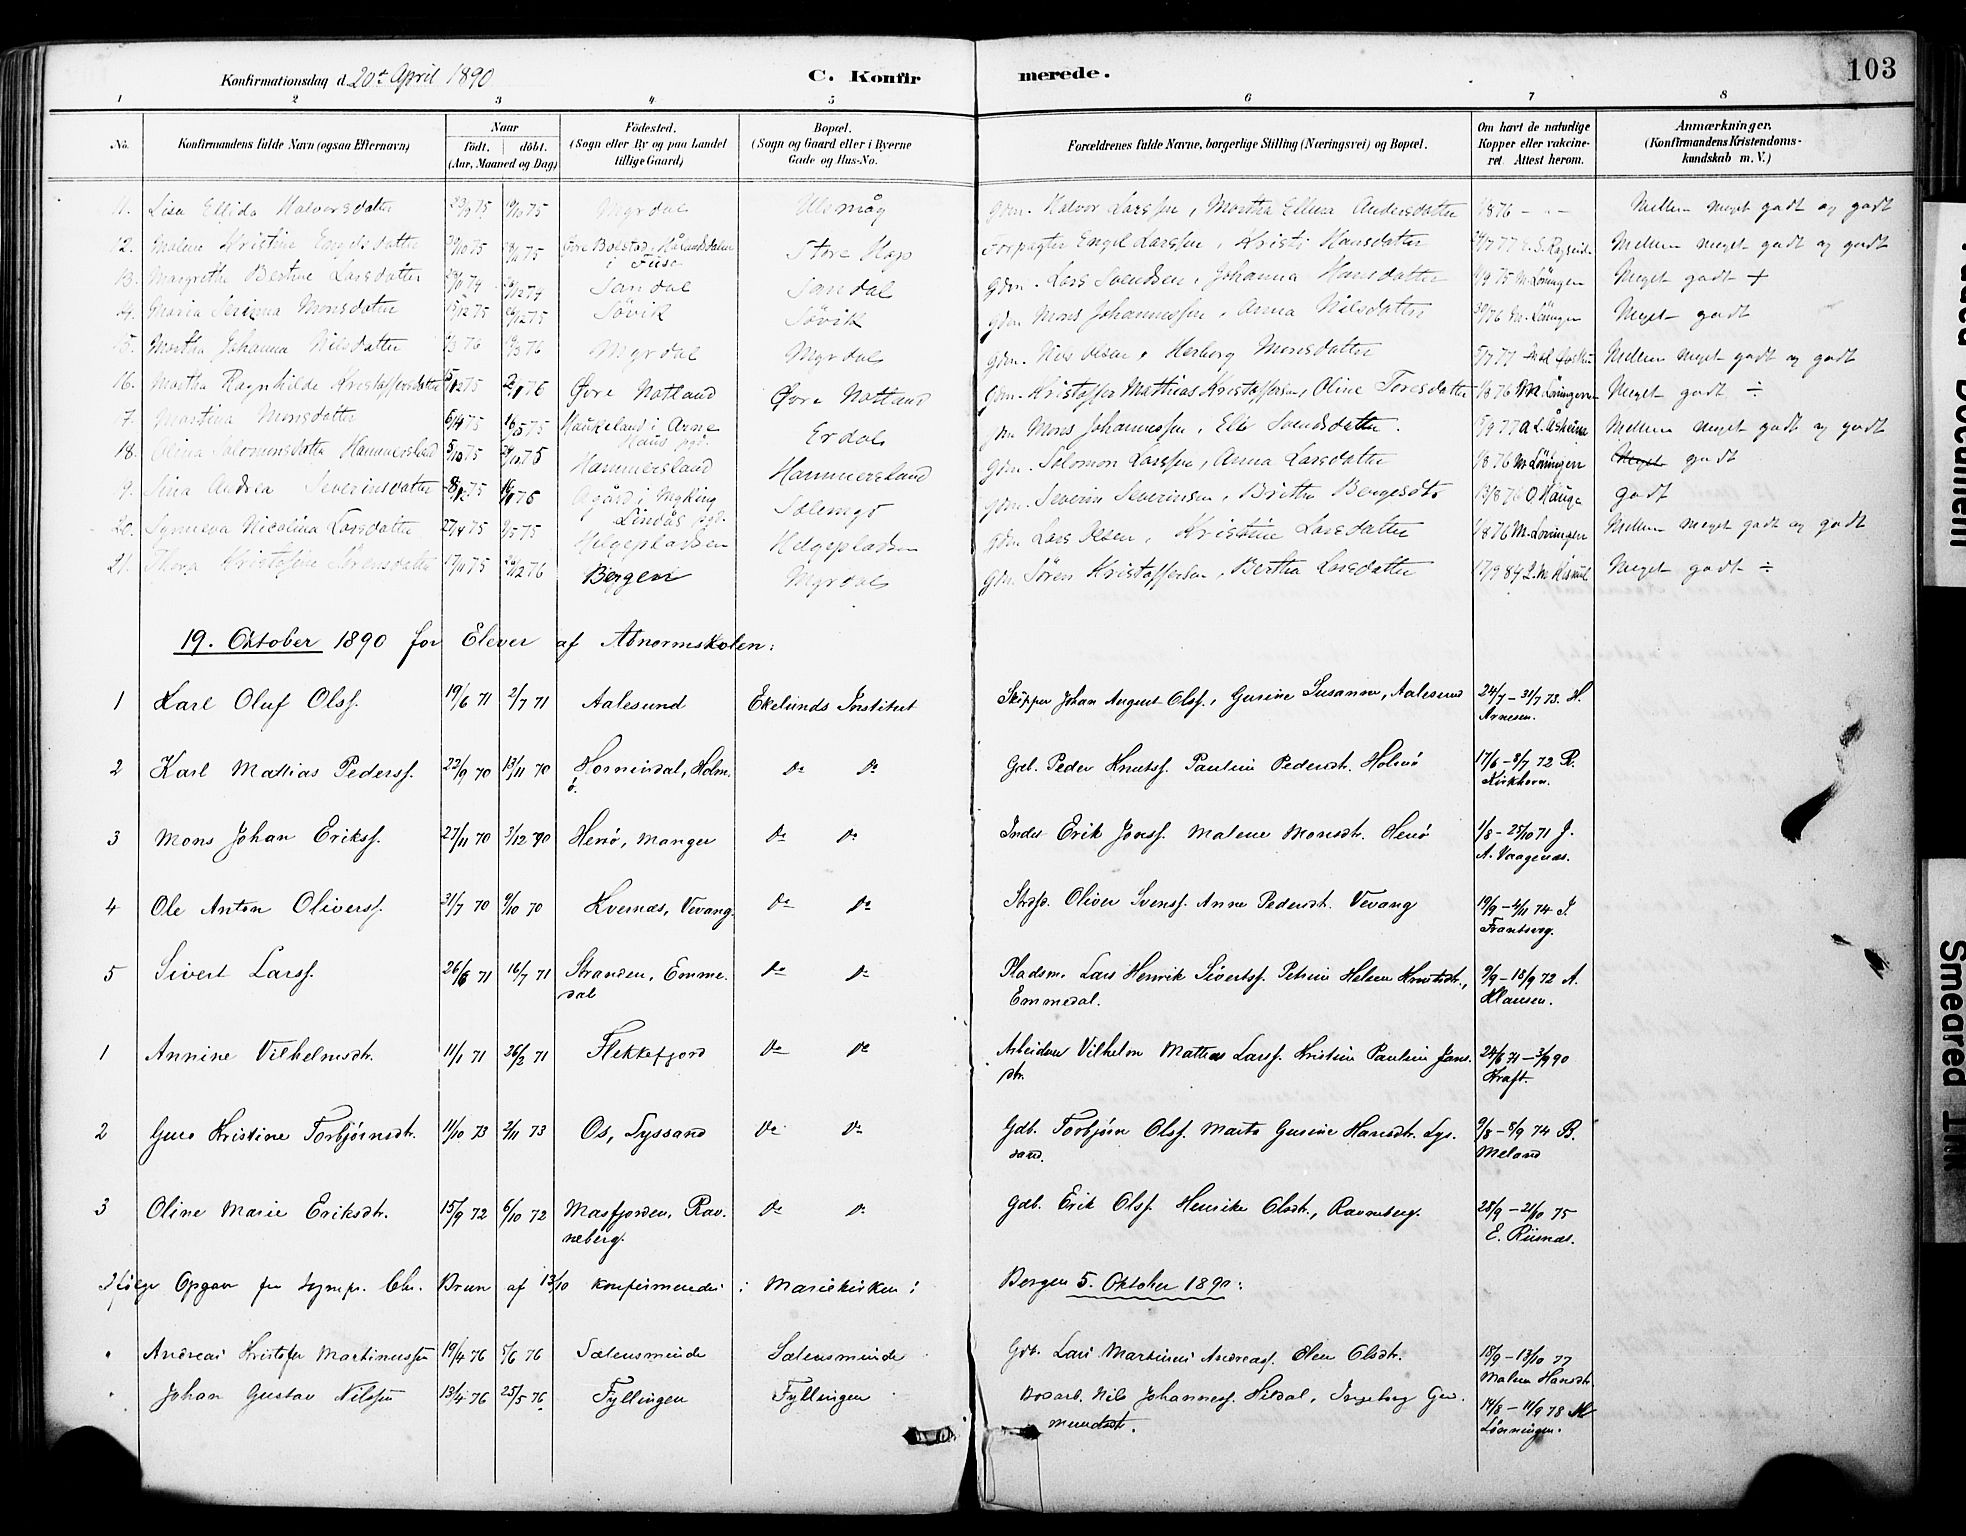 Konfirmationsdag d. 20de April 1890 C. Konfir merede. 103
1 2 3 4 5 6 7 8
No. Konfirmandens fulde Navn (ogsaa Efternavn) Naar født. døbt. (Aar, Maaned og Dag) Fødested. (Sogn eller By og paa Landet tillige Gaard) Bopæl. (Sogn og Gaard eller i Byerne Gade og Hus-No. Forældrenes fulde Navne, borgerlige Stilling (Næringsvei) og Bopæl. Om havt de naturlige Kopper eller vakcineret Attest herom. Anmærkninger. (Konfirmandens Kristendomskundskab m. V.)
11. Lisa Ellida Halvorsdatter Myrdal Gdm. Halvor Larssen, Martha Ellina Andersdatter Mellem meget godt og godt
12. Malene Kristine Engelsdatter Øvre Bolstad, Hålandsdalen i Fuse Store Hop Forpagter Engel Larssen, Kristi Hansdatter Mellem meget godt og godt
13. Margrethe Bertine Larsdatter Sandal Sandal Gdm. Lars Svendsen, Johanna Hansdatter M. Löningen Meget godt +
14. Maria Serina Monsdatter Søvik Søvik Gdm. Mons Johannessen, Anna Nilsdatter M. Löningen Meget godt
15. Martha Johanna Nilsdatter Myrdal Myrdal Gdm. Nils Olsen, Herborg Monsdatter Mellem meget godt og godt
16. Martha Ragnhilde Kristoffersdatter Øvre Natland Øvre Natland Gdm. Kristoffer Mathias Kristoffersen, Oline Toresdatter M. Löningen Meget godt ÷
7. Martina Monsdatter 16/5 75 Haukeland i Arne Haus pgd. Erdal Mons Johannessen, Eli Svendsdatter. A. L. Åsheim Mellem meget godt og godt
18. Olina Salomonsdatter Hammersland Hammersland Hammersland Gdm. Salomon Larssen, Anna Larsdatter M. Löningen Meget godt
9. Sina Andrea Severinsdatter Myking Lindås pgd. Sælemyr Gdm. Severin Severinsen, Britha Bergesdtr 13/8 76 O Hauge godt
20. Synneva Nicolina Larsdatter 27/4 75 Helgepladsen Helgepladsen Gdm. Lars Olsen, Kristine Larsdatter M. Löningen Mellem meget godt og godt
21. Thora Kristofine Sørensdatter Bergen Myrdal Gdm. Sören Kristoffersen, Bertha Larsdatter 17/9 84 Meget godt ÷
19. Oktober 1890 for Elever af Abnormskolen:
1 Karl Oluf Olsf. 19/6 71 2/7 71 Aalesund Ekelunds Institut Skipper Johan August Olsf., Gurine Susanna, Aalesund 24/7 – 31/7 73. H. Arnesen.
2 Karl Mathias Pedersf. 22/9 70 13/11 70 Hornindal, Holmö. Do Do Gdb. Peder Knutsf. Pauline Pedersdt. Holmö 17/6 – 8/7 72 R. Kirkhorn.
3 Mons Johan Eriksf. 27/11 70 3/12 70 Herø, Manger Do Do Inder. Erik Jonsf. Malene Monsdtr. Herø 1/8 – 25/10 71 J. A. Vaagenes.
4 Ole Anton Oliversf. 31/7 70 9/10 70 Kvernæs, Vevang. Do Do Oliver Svensf. Anne Pedersdt. Vevang 19/9 – 4/11 74 J. Frantberg.
5 Sivert Larsf. 26/6 71 16/7 71 Stranden, Emmedal Do Do Pladsm. Lars Henrik Sivertsf. Petrine Helene Knutsdtr., Emmedal. 9/9 – 18/9 72 A. Klausen.
1 Annine Vilhelmsdtr. 11/1 71 26/2 71 Flekkefjord Do Do Arbeider Vilhelm Mathias Larsf. Kristine Pauline Jansdtr. 24/6 71 – 3/9 90 Kraft.
2 Guro Kristine Torbjørnsdt. 11/10 73 2/11 73 Os, Lyssand Do Do Gdb. Torbjørn Olsf. Marta Gurine Hansdt. Lyssand. 9/8 – 8/9 74 B. Meland
3 Oline Marie Eriksdtr. 15/9 72 6/10 72 Masfjorden, Ravneberg. Do Do Gdb. Erik Olsf. Henrikke Olsdt., Ravneberg. 28/9 – 2/10 75 E. Riisnæs.
Ifølge Opgave fra Sognepr. Chr. Brun af 13/10 konfirmerede i Mariekirken i Bergen 5. Oktober 1890:
" Andreas Kristofer Martinussen 19/4 76 5/6 76 Sælensminde Sælensminde Gdb. Lars Martinus Andreasf. Elen Olsdt. 18/9 – 13/10 77 Malene Hansdt.
" Johan Gustav Nilssen 13/4 76 25/5 76 Fyllingen Fyllingen Nils Johannesf. Hildal, Ingeborg Gumundsdt. 14/8 – 11/9 78 M Lönningen.
Faded Document
Smeared Ink